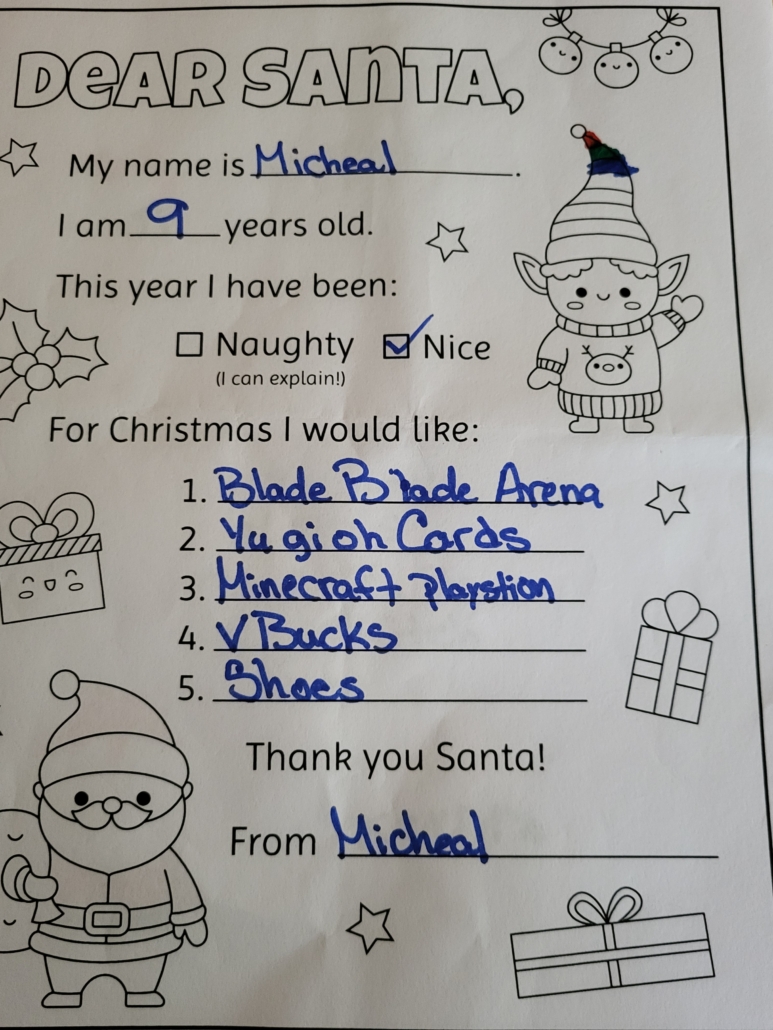 DeAR SANTA,
My name is Micheal.
I am 9 years old.
This year I have been:
Naughty Nice
(I can explain!)
For Christmas I would like:
1. Blade Blade Arena
2. Yu gi oh Cards
3. Minecraft Playstion
4. V Bucks
5. Shoes
Thank you Santa!
From Micheal